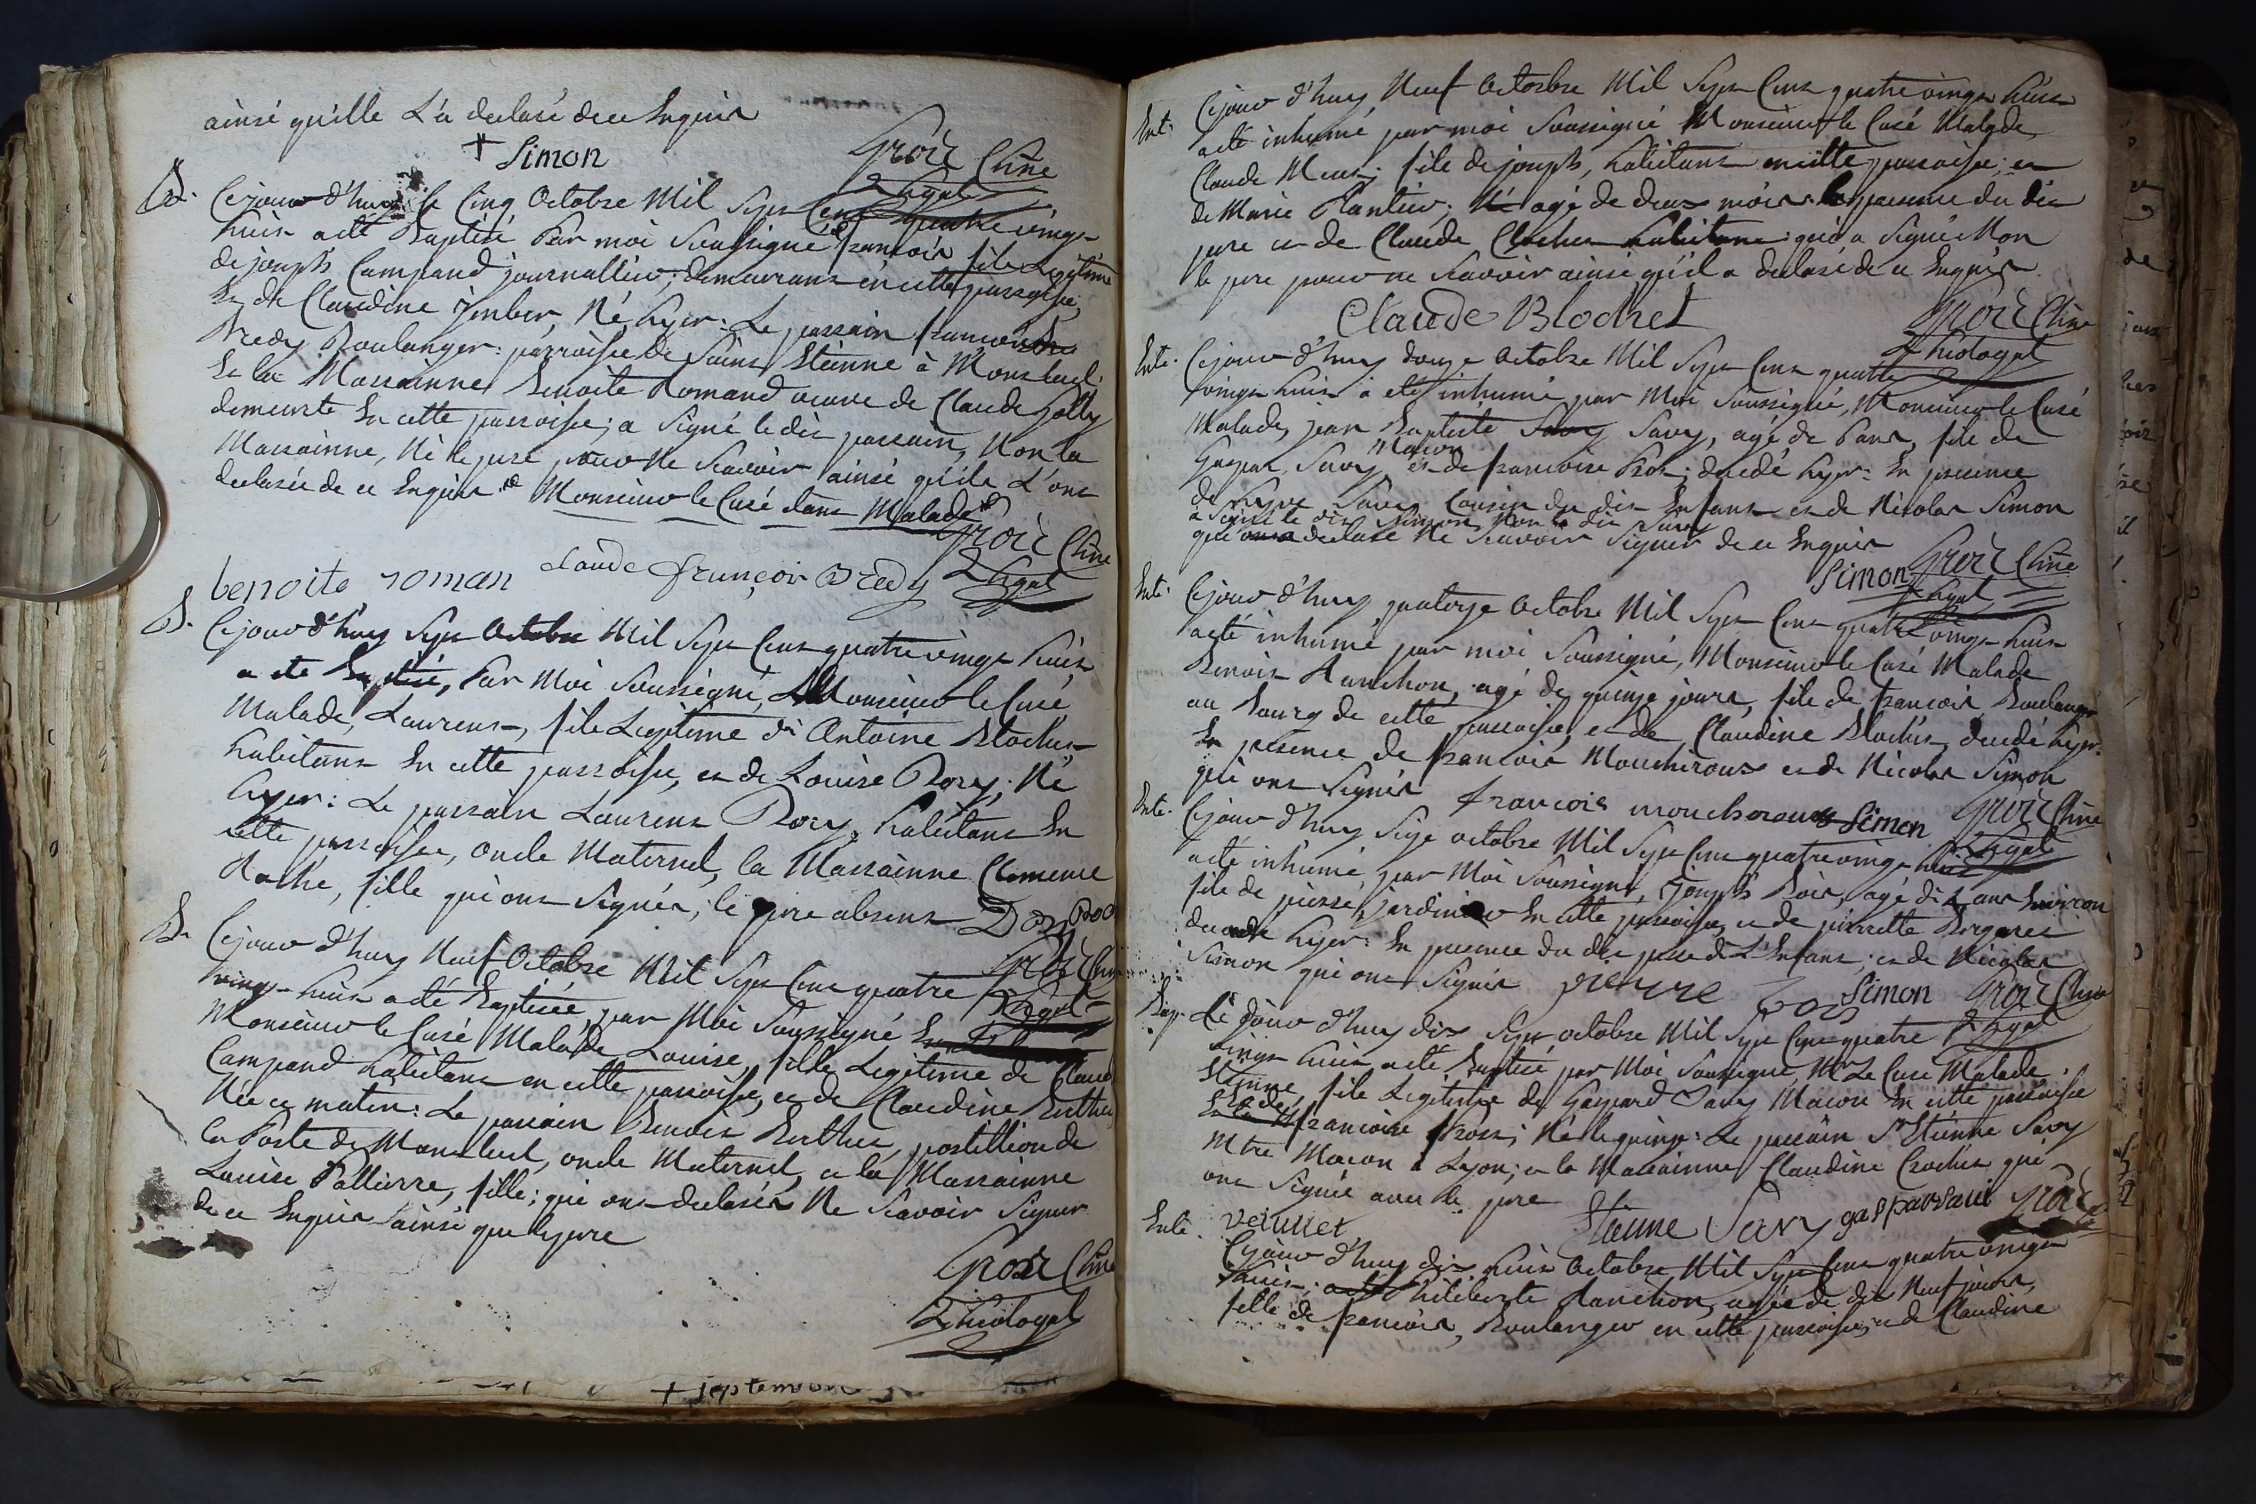 ainsi qu'elle L'a declaré de ce Enquis
+ Simon
Groz Chne
Théologal
B. Cejourd'huy le Cinq Octobre Mil Sept Cent quatre vingt
huit a été Baptisé Par moi Soussigné françois fils Legitime
de joseph Campand journallier, demeurant en cette parroisse,
Et de Claudine imber, Né hyer: Le parrain francois
Bredy Boulanger: parroisse de Saint Etienne à Montluel
Et la Marrainne Benoite Romand veuve de Claude Jolly
demeurte En cette parroisse; a Signé le dit parrain, Non la
Marrainne, Ni le pere pour Ne Scavoir ainsi qu'ils L'ont
declaré de ce Enquis Monsieur le Curé etant Malade
Groz Chne
Théologal
benoite roman claude françois Bredy
B. Cejourd'huy Sept Octobre Mil Sept Cent quatre vingt huit
a été Baptisé, Par Moi Soussigné, Monsieur le Curé
Malade, Laurent, fils Legitime d'Antoine Blochet
habitant En cette parroisse, et de Louise Dory; Né
hyer: Le parrain Laurent Dory, habitant En
cette parroisse, oncle Maternel, la Marrainne Clemence
Roche, fille qui ont Signés, le pere absent Dory Roc
Groz Chne
Théologal
B. Cejourd'huy Neuf Octobre Mil Sept Cent quatre
vingt huit a été Baptisée, par Moi Soussigné
Monsieur le Curé Malade Louise, fille Legitime de Claude
Campand habitant en cette parroisse, et de Claudine Berthet
Née ce matin: Le parrain Benoit Berthet, postillion de
la Poste de Montluel, oncle Maternel, et la Marrainne
Louise Pallierre, fille; qui ont declarés Ne Scavoir Signer
de ce Enquis ainsi que le pere
Groz Chne
Théologal
+ septembre
Ent. Cejourd'huy Neuf Octobre Mil Sept Cent quatre vingt huit
a été inhumé par moi Soussigné Monsieur le Curé Malade,
Claude fils de joseph, habitant en cette parroisse; et
de Marie Plantier; agé de deux mois: En presence du dit
pere et de Claude Blochet habitant; qui a Signé Non
le pere pour ne Scavoir ainsi qu'il a declaré de ce Enquis
Claude Blochet
Groz Chne
Théologal
Ent. Cejourd'huy douze Octobre Mil Sept Cent quatre
vingt huit a été inhumé par Moi Soussigné, Monsieur le Curé
Malade, jean Baptiste Savy, agé de ans, fils de
Gaspar Savy Macon et de francoise Gros; decedé hyer: En presence
de Savy Cousin du dit Enfant et de Nicolas Simon
a Signé le dit Simon, Non le dit Savy
qui a declaré Ne Scavoir Signer de ce Enquis
Simon Groz Chne
Théologal
Ent. Cejourd'huy quatorze Octobre Mil Sept Cent quatre vingt huit
a été inhumé par moi Soussigné, Monsieur le Curé Malade
Benoit Ranchon, agé de quinze jours, fils de francois Boulanger
au Bourg de cette parroisse, et de Claudine Blochet, decedé hyer:
En presence de francois Moucheroux et de Nicolas Simon
qui ont Signés
francois moucheroux Simon Groz Chne
Théologal
Ent. Cejourd'huy Seize octobre Mil Sept Cent quatre vingt huit
a été inhumé, par Moi Soussigné, Joseph Bois, agé d'1 ans Environ
fils de pierre, jardinier En cette parroisse, et de pierrette
decedé hyer: En presence du dit pere de L'Enfant; et de Nicolas
Simon qui ont Signés pierre Bois Simon Groz Chne
Théologal
Bap. Ce jourd'huy dix Sept octobre Mil Sept Cent quatre
vingt huit a été Baptisé par Moi Soussigné, Mr Le Curé Malade.
Etienne, fils Legitime de Gaspard Savy Macon En cette parroisse
Et de francoise Gros; Né le quinze: Le parrain Sr Etienne Savy
Mtre Macon à Lyon; et la Marrainne Claudine Crochet qui
ont Signé avec le pere Etienne Savy gaspar savi Groz
Ent. Cejourd'huy dix huit Octobre Mil Sept Cent quatre vingt
huit; Philiberte Ranchon, agée de dix Neuf jours,
fille de francois, Boulanger en cette parroisse, et de Claudine